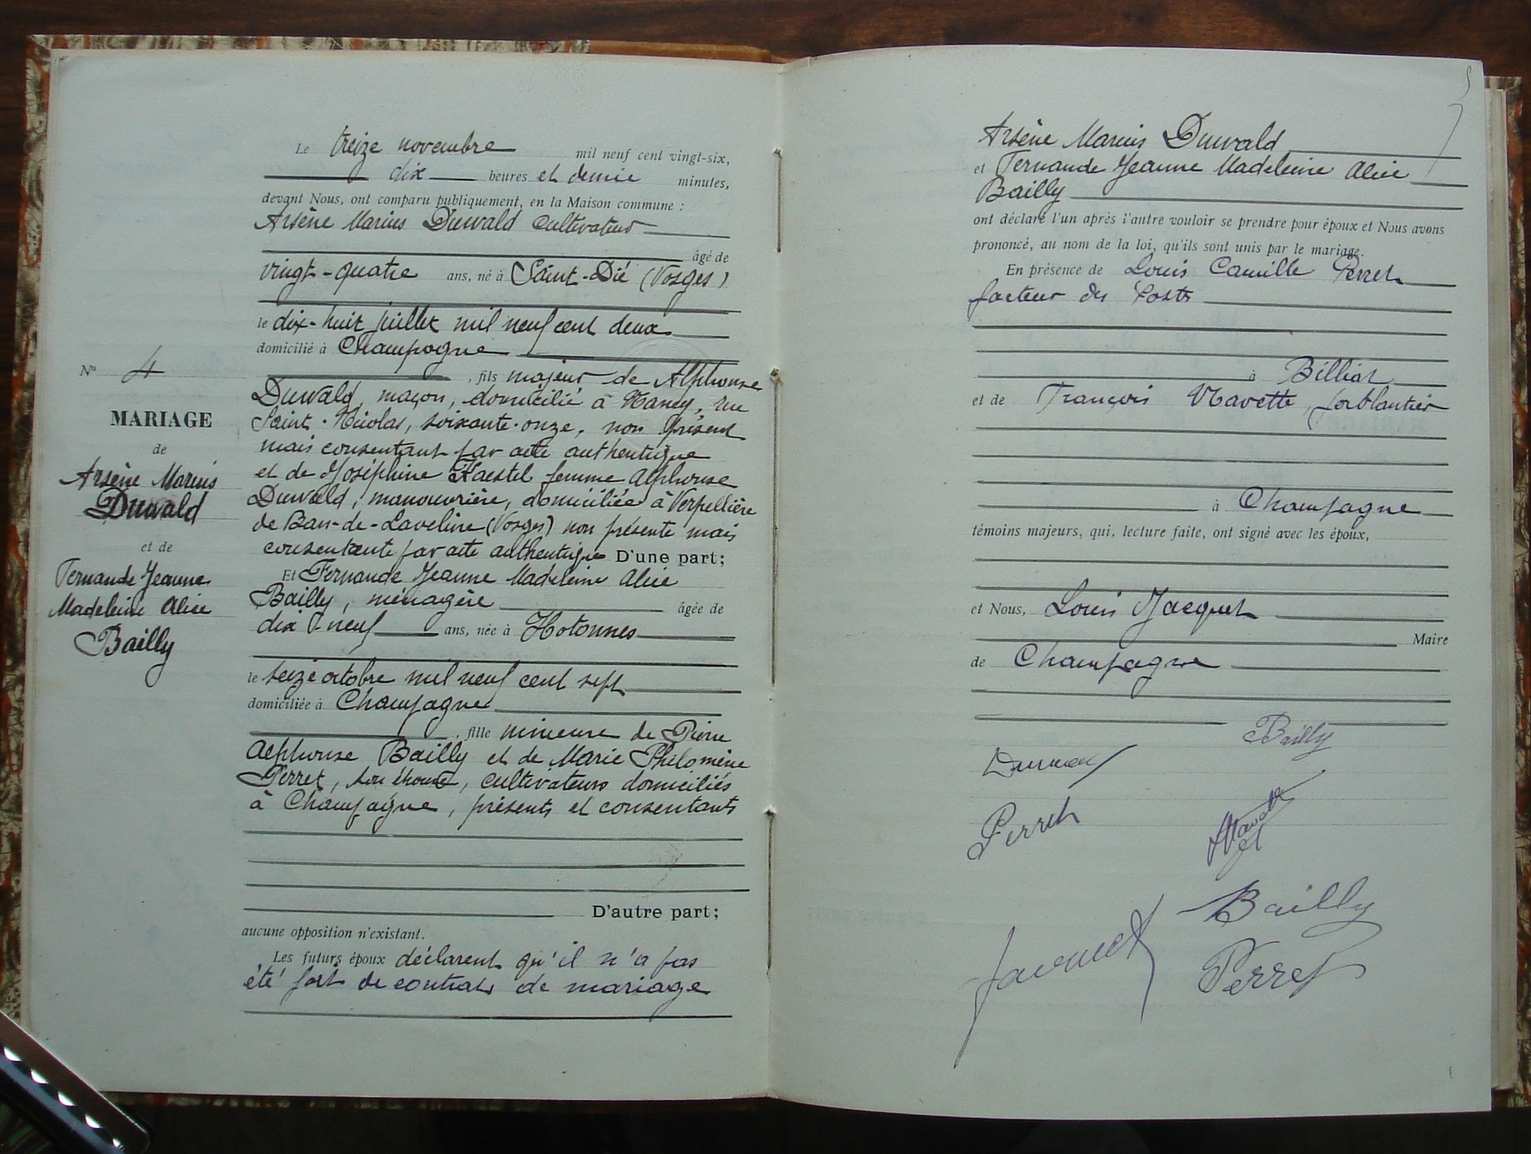 Le treize novembre mil neuf cent vingt-six,
dix heures et demie minutes,
devant Nous, ont comparu publiquement, en la Maison commune :
Arsène Marius Duwald cultivateur
âgé de
vingt-quatre ans, né à Saint-Dié (Vosges)
le dix-huit juillet mil neuf cent deux
domicilié à Champagne
, fils majeur de Alphonse
Duwald, maçon, domicilié à Nancy, rue
Saint-Nicolas, soixante-onze, non présent
mais consentant par acte authentique
et de Joséphine Kaestel femme Alphonse
Duwald, manouvrière, domiciliée à Verpellière
de Ban-de-Laveline (Vosges) non présente mais
consentante par acte authentique D'une part;
Et Fernande Jeanne Madeleine Alice
Bailly, ménagère âgée de
dix neuf ans, née à Hotonnes
le seize octobre mil neuf cent sept
domiciliée à Champagne
, fille mineure de Pierre
Alphonse Bailly et de Marie Philomène
Perret, son épouse, cultivateurs domiciliés
à Champagne, présents et consentants
D'autre part;
aucune opposition n'existant.
Les futurs époux déclarent qu'il n'a pas
été fait de contrat de mariage
N° 4
MARIAGE
de
Arsène Marius
Duwald
et de
Fernande Jeanne
Madeleine Alice
Bailly
Arsène Marius Duwald
et Fernande Jeanne Madeleine Alice
Bailly
ont déclaré l'un après l'autre vouloir se prendre pour époux et Nous avons
prononcé, au nom de la loi, qu'ils sont unis par le mariage.
En présence de Louis Camille Perret
facteur des Postes
à Billiat
et de François Navette, ferblantier
à Champagne
témoins majeurs, qui, lecture faite, ont signé avec les époux,
et Nous, Louis Jacquet
Maire
de Champagne
Bailly
Perret
Navette
Bailly
Jacquet
Perret